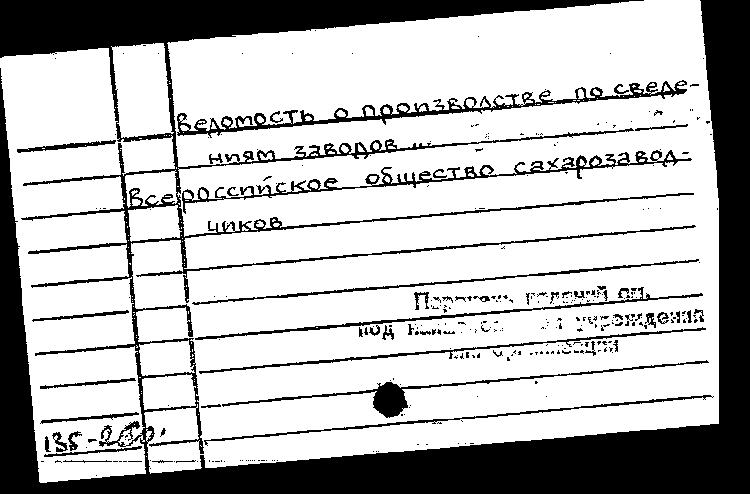 Ведомость о производстве по сведе-
ниям заводов ...
Всероссийское общество сахарозавод-
чиков
Перечень изданий см.
под учреждения
или организации